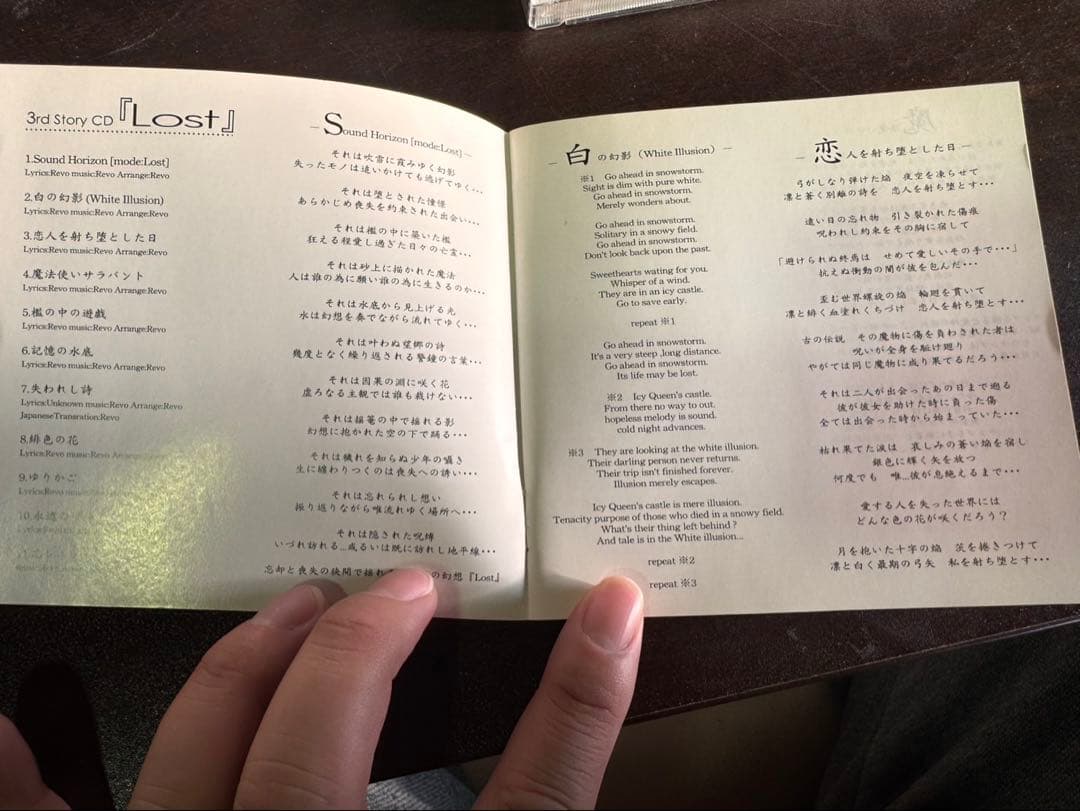 3rd Story CD『Lost』
1.Sound Horizon [mode:Lost]
Lyrics:Revo music:Revo Arrange:Revo
2.白の幻影 (White Illusion)
Lyrics:Revo music:Revo Arrange:Revo
3.恋人を射ち堕とした日
Lyrics:Revo music:Revo Arrange:Revo
4.魔法使いサラバント
Lyrics:Revo music:Revo Arrange:Revo
5.檻の中の遊戯
Lyrics:Revo music:Revo Arrange:Revo
6.記憶の水底
Lyrics:Revo music:Revo Arrange:Revo
7.失われし詩
Lyrics:Unknown music:Revo Arrange:Revo
JapaneseTransration:Revo
8.緋色の花
Lyrics:Revo music:Revo Arrange:Revo
9.ゆりかご
Lyrics:Revo music:Revo Arrange:Revo
10.永遠の
－ Sound Horizon [mode:Lost] －
それは吹雪に霞みゆく幻影
失ったモノは追いかけても逃げてゆく･･･
それは堕とされた憧憬
あらかじめ喪失を約束された出会い･･･
それは檻の中に築いた檻
狂える程愛し過ぎた日々の亡言･･･
それは砂上に描かれた魔法
人は誰の為に願い誰の為に生きるのか･･･
それは水底から見上げる光
水は幻想を奏でながら流れてゆく･･･
それは叶わぬ望郷の詩
幾度となく繰り返される警鐘の言葉･･･
それは因果の淵に咲く花
虚ろなる主観では誰も裁けない･･･
それは揺篭の中で揺れる影
幻想に抱かれた空の下で踊る･･･
それは穢れを知らぬ少年の囁き
生に纏わりつくのは喪失への誘い･･･
それは忘れられし想い
振り返りながら唯流れゆく場所へ･･･
それは隠された呪縛
いづれ訪れる...或るいは既に訪れし地平線･･･
忘却と喪失の狭間で揺れ の幻想『Lost』
－ 白の幻影（White Illusion）－
※1 Go ahead in snowstorm.
Sight is dim with pure white.
Go ahead in snowstorm.
Merely wonders about.
Go ahead in snowstorm.
Solitary in a snowy field.
Go ahead in snowstorm.
Don't look back upon the past.
Sweethearts wating for you.
Whisper of a wind.
They are in an icy castle.
Go to save early.
repeat ※1
Go ahead in snowstorm.
It's a very steep ,long distance.
Go ahead in snowstorm.
Its life may be lost.
※2 Icy Queen's castle.
From there no way to out.
hopeless melody is sound.
cold night advances.
※3 They are looking at the white illusion.
Their darling person never returns.
Their trip isn't finished forever.
Illusion merely escapes.
Icy Queen's castle is mere illusion.
Tenacity purpose of those who died in a snowy field.
What's their thing left behind ?
And tale is in the White illusion...
repeat ※2
repeat ※3
－ 恋人を射ち堕とした日 －
弓がしなり弾けた焔 夜空を凍らせて
凛と蒼く別離の詩を 恋人を射ち堕とす･･･
遠い日の忘れ物 引き裂かれた傷痕
呪われし約束をその胸に宿して
「避けられぬ終焉は せめて愛しいその手で･･･」
抗えぬ衝動の闇が彼を包んだ･･･
歪む世界螺旋の焔 輪廻を貫いて
凛と緋く血塗れくちづけ 恋人を射ち堕とす･･･
古の伝説 その魔物に傷を負わされた者は
呪いが全身を駈け廻り
やがては同じ魔物に成り果てるだろう･･･
それは二人が出会ったあの日まで遡る
彼が彼女を助けた時に負った傷
全ては出会った時から始まっていた･･･
枯れ果てた涙は 哀しみの蒼い焔を宿し
銀色に輝く矢を放つ
何度でも 唯...彼が息絶えるまで･･･
愛する人を失った世界には
どんな色の花が咲くだろう？
月を抱いた十字の焔 茨を捲きつけて
凛と白く最期の弓矢 私を射ち堕とす･･･